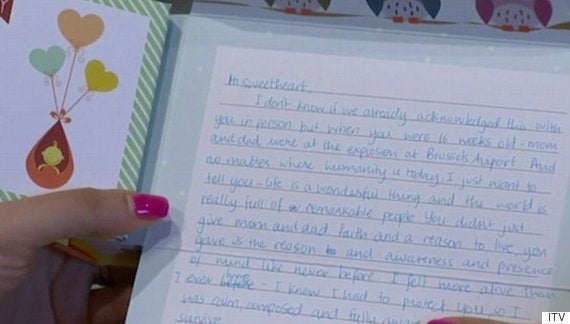 Hi sweetheart,
I don't know if we already acknowledged this with
you in person but when you were 16 weeks old - mom
and dad were at the explosion at Brussels Airport. And
no matter where humanity is today, I just want to
tell you - life is a wonderful thing and the world is
really full of remarkable people. You didn't just
give mom and dad faith and a reason to live, you
gave us the reason and awareness and presence
of mind like never before. I fell more alive than
I ever have - I knew I had to protect you, so I
was calm, composed and fully
survive
ITV